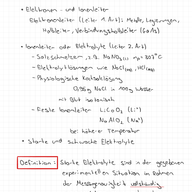 • Elektronen- und Ionenleiter
Elektronenleiter (Leiter 1. Art): Metalle, Legierungen,
Halbleiter, Verbindungshalbleiter (GaAs)
• Ionenleiter oder Elektrolyte (Leiter 2. Art)
- Salzschmelzen, z.B. NaCl
- Elektrolytlösungen wie
- Physiologische Kochsalzlösung
0,9 g NaCl in 100 g Wasser
mit Blut isotonisch
- Feste Ionenleiter
bei höherer Temperatur
• Starke und schwache Elektrolyte
Definition: Starke Elektrolyte sind in der gegebenen
experimentellen Situation im Rahmen
der Messgenauigkeit vollständig